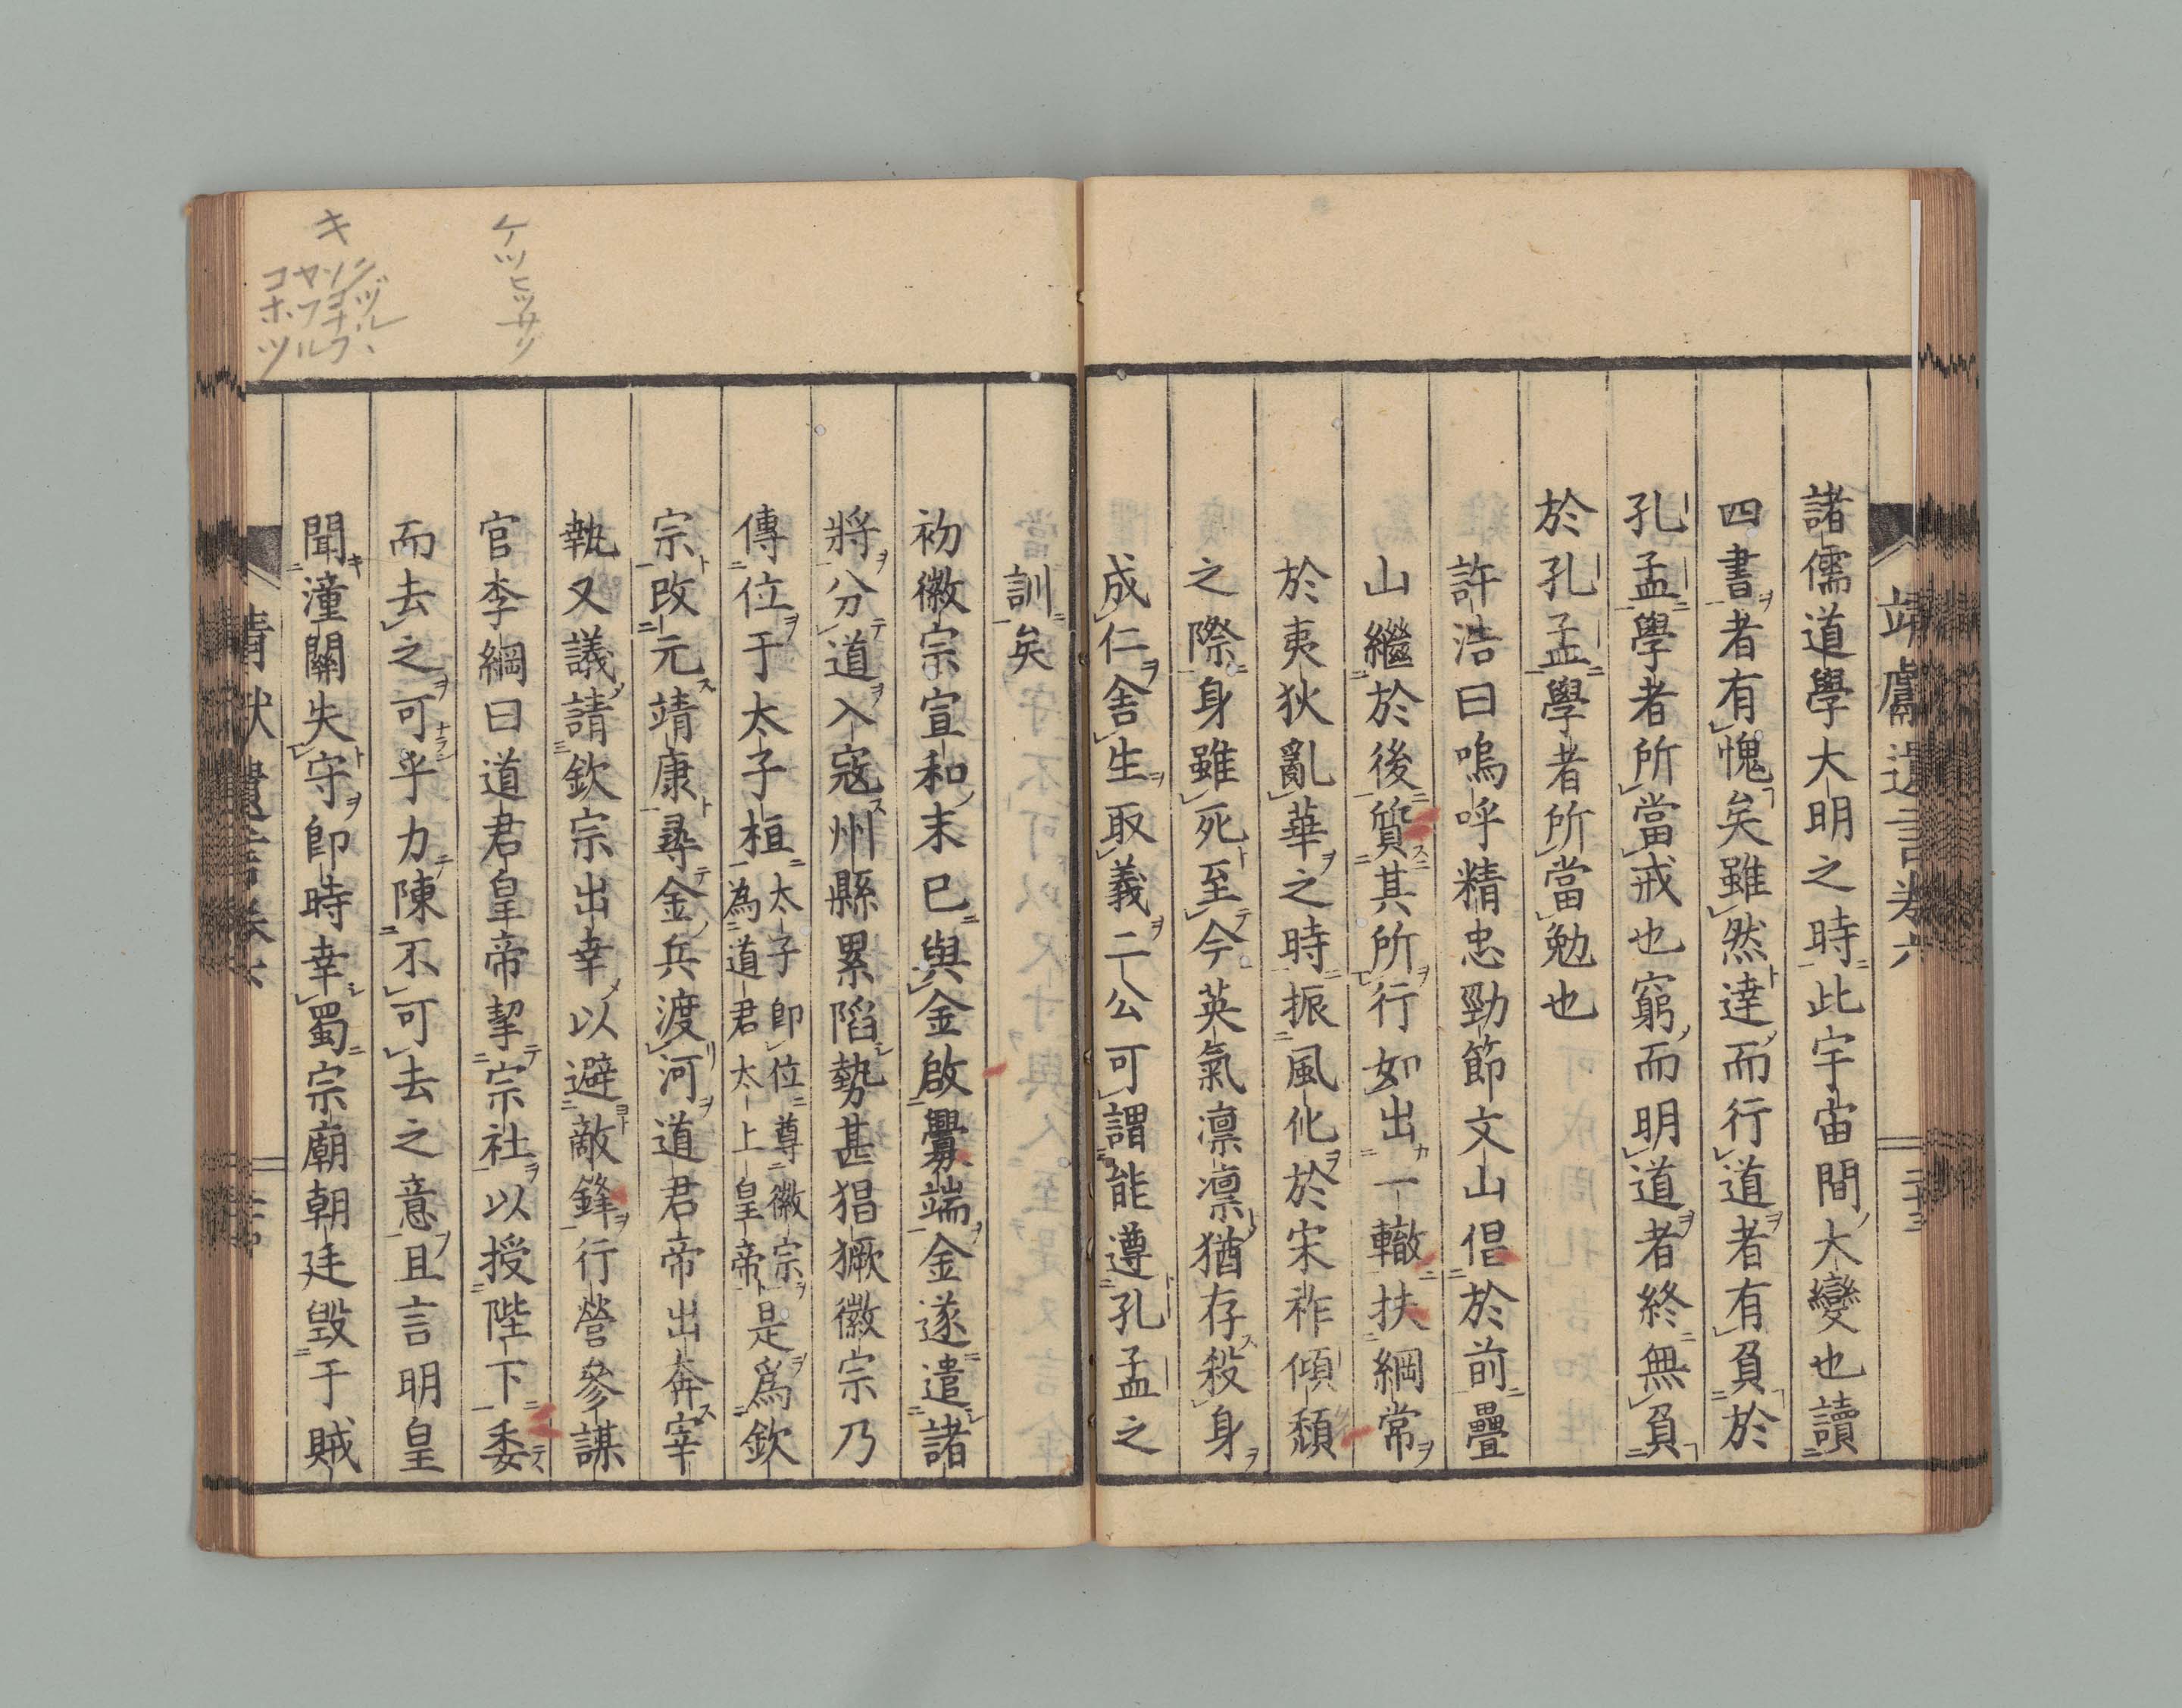 靖獻遺言卷六
二十三
諸儒道學大明之時此宇宙間大變也讀
四書者有愧矣雖然達而行道者有負於
孔孟學者所當戒也窮而明道者終無負
於孔孟學者所當勉也
許浩曰嗚呼精忠勁節文山倡於前疊
山繼於後質其所行如出一轍扶綱常
於夷狄亂華之時振風化於宋祚傾頹
之際身雖死至今英氣凛凛猶存殺身
成仁舍生取義二公可謂能遵孔孟之
訓矣
初徽宗宣和末已與金啟釁端金遂遣諸
將分道入寇州縣累陷勢甚猖獗徽宗乃
傳位于太子桓太子卽位尊徽宗為道君太上皇帝是爲欽
宗改元靖康尋金兵渡河道君帝出奔宰
執又議請欽宗出幸以避敵鋒行營參謀
官李綱曰道君皇帝挈宗社以授陛下委
而去之可乎力陳不可去之意且言明皇
聞潼關失守卽時幸蜀宗廟朝廷毀于賊
ケツヒツサリ
キ